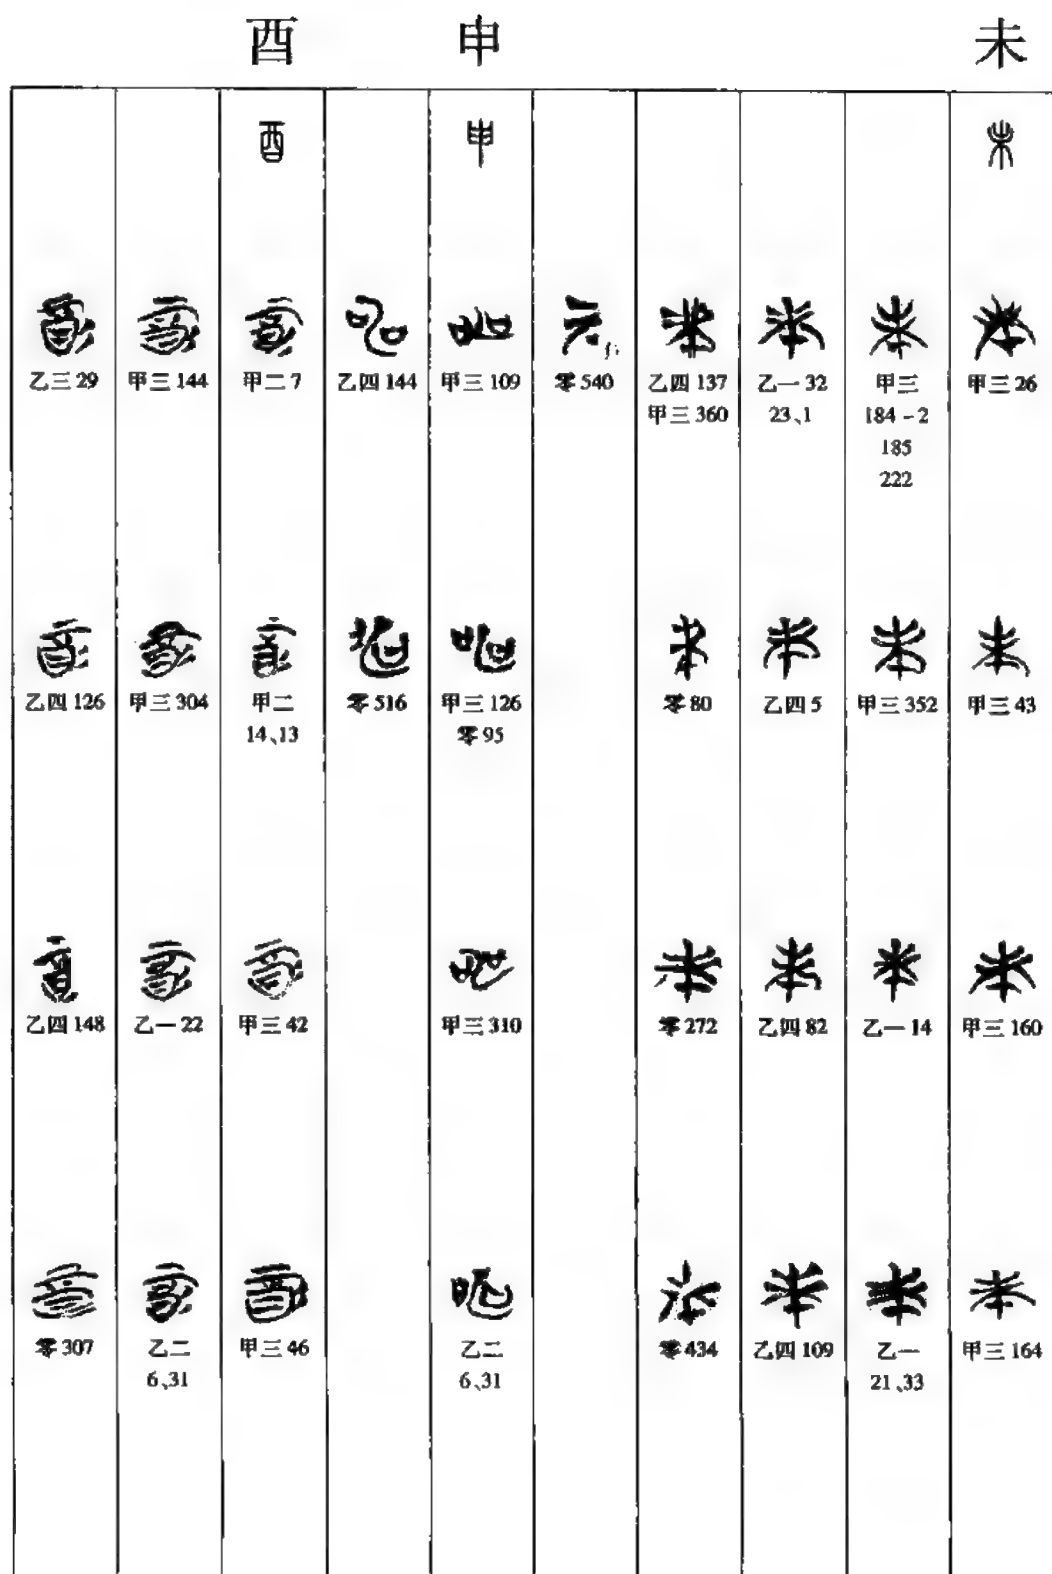 未
未
甲三 26
甲三 43
甲三 160
甲三 164
甲三
184-2
185
222
甲三 352
乙一 14
乙一
21、33
乙一 32
23、1
乙四 5
乙四 82
乙四 109
乙四 137
甲三 360
零 80
零 272
零 434
零 540
申
申
甲三 109
甲三 126
零 95
甲三 310
乙二
6、31
乙四 144
零 516
酉
酉
甲二 7
甲二
14、13
甲三 42
甲三 46
甲三 144
甲三 304
乙一 22
乙二
6、31
乙三 29
乙四 126
乙四 148
零 307